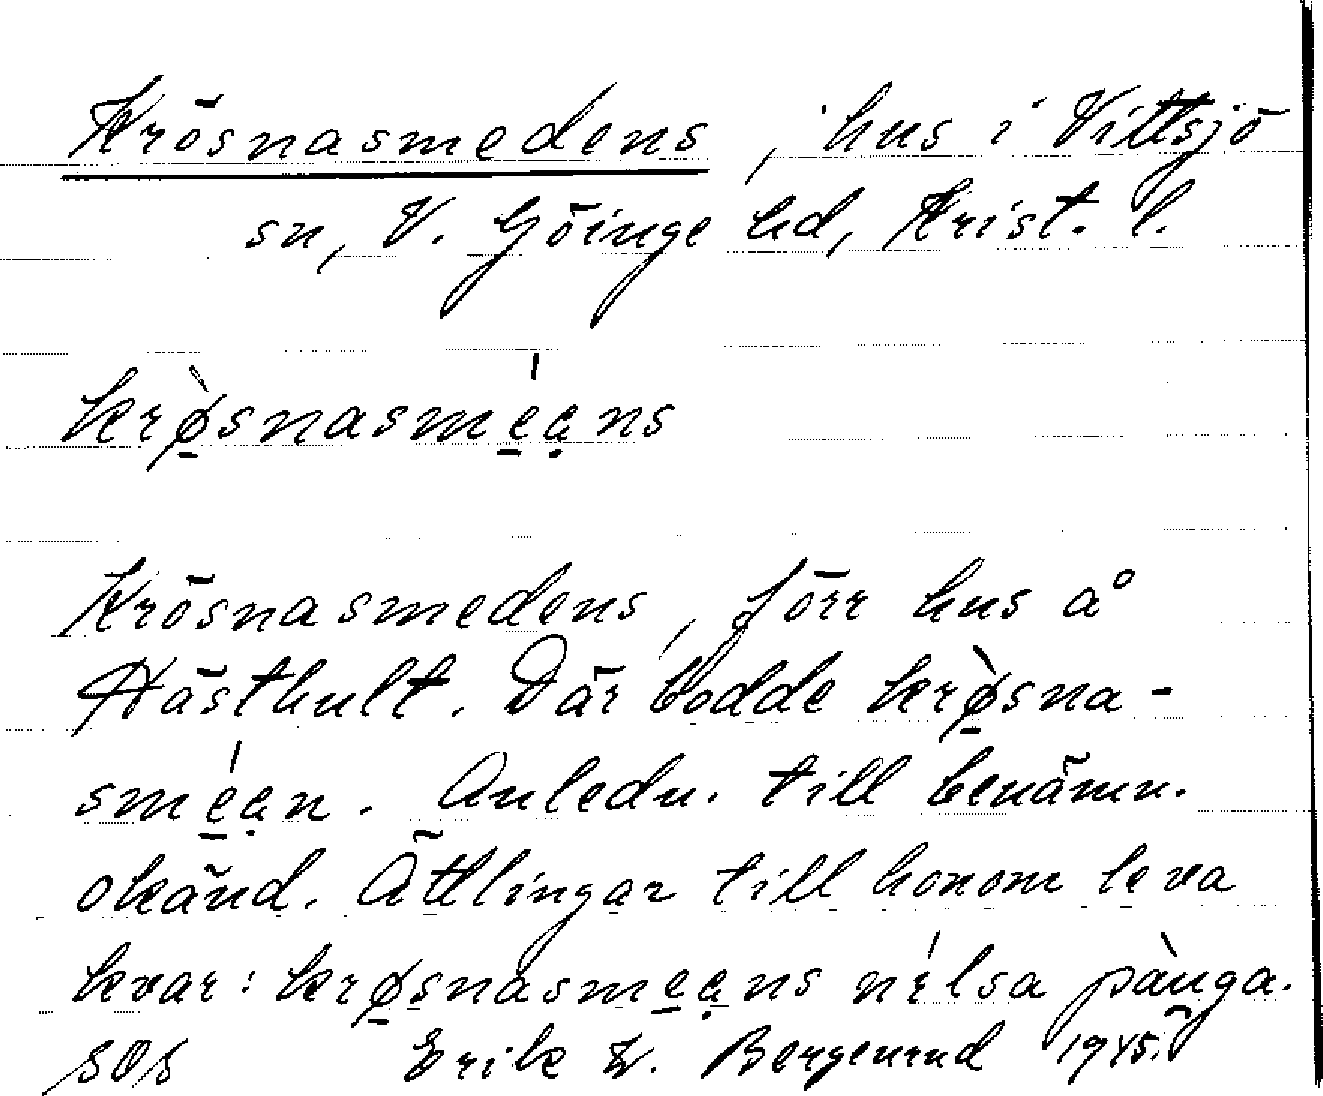 Krösnasmedens, hus i Vittsjö
sn, V. Göinge hd, Krist. l.
krø̀snasméąns
Krösnasmedens, förr hus å
Hästhult. Där bodde krø̀sna-
sméąn. Anledn. till benämn.
okänd. Ättlingar till honom leva
kvar: krøsnasmeąns nílsa pàŋga.
SOS Erik W. Bergenrud 1945.